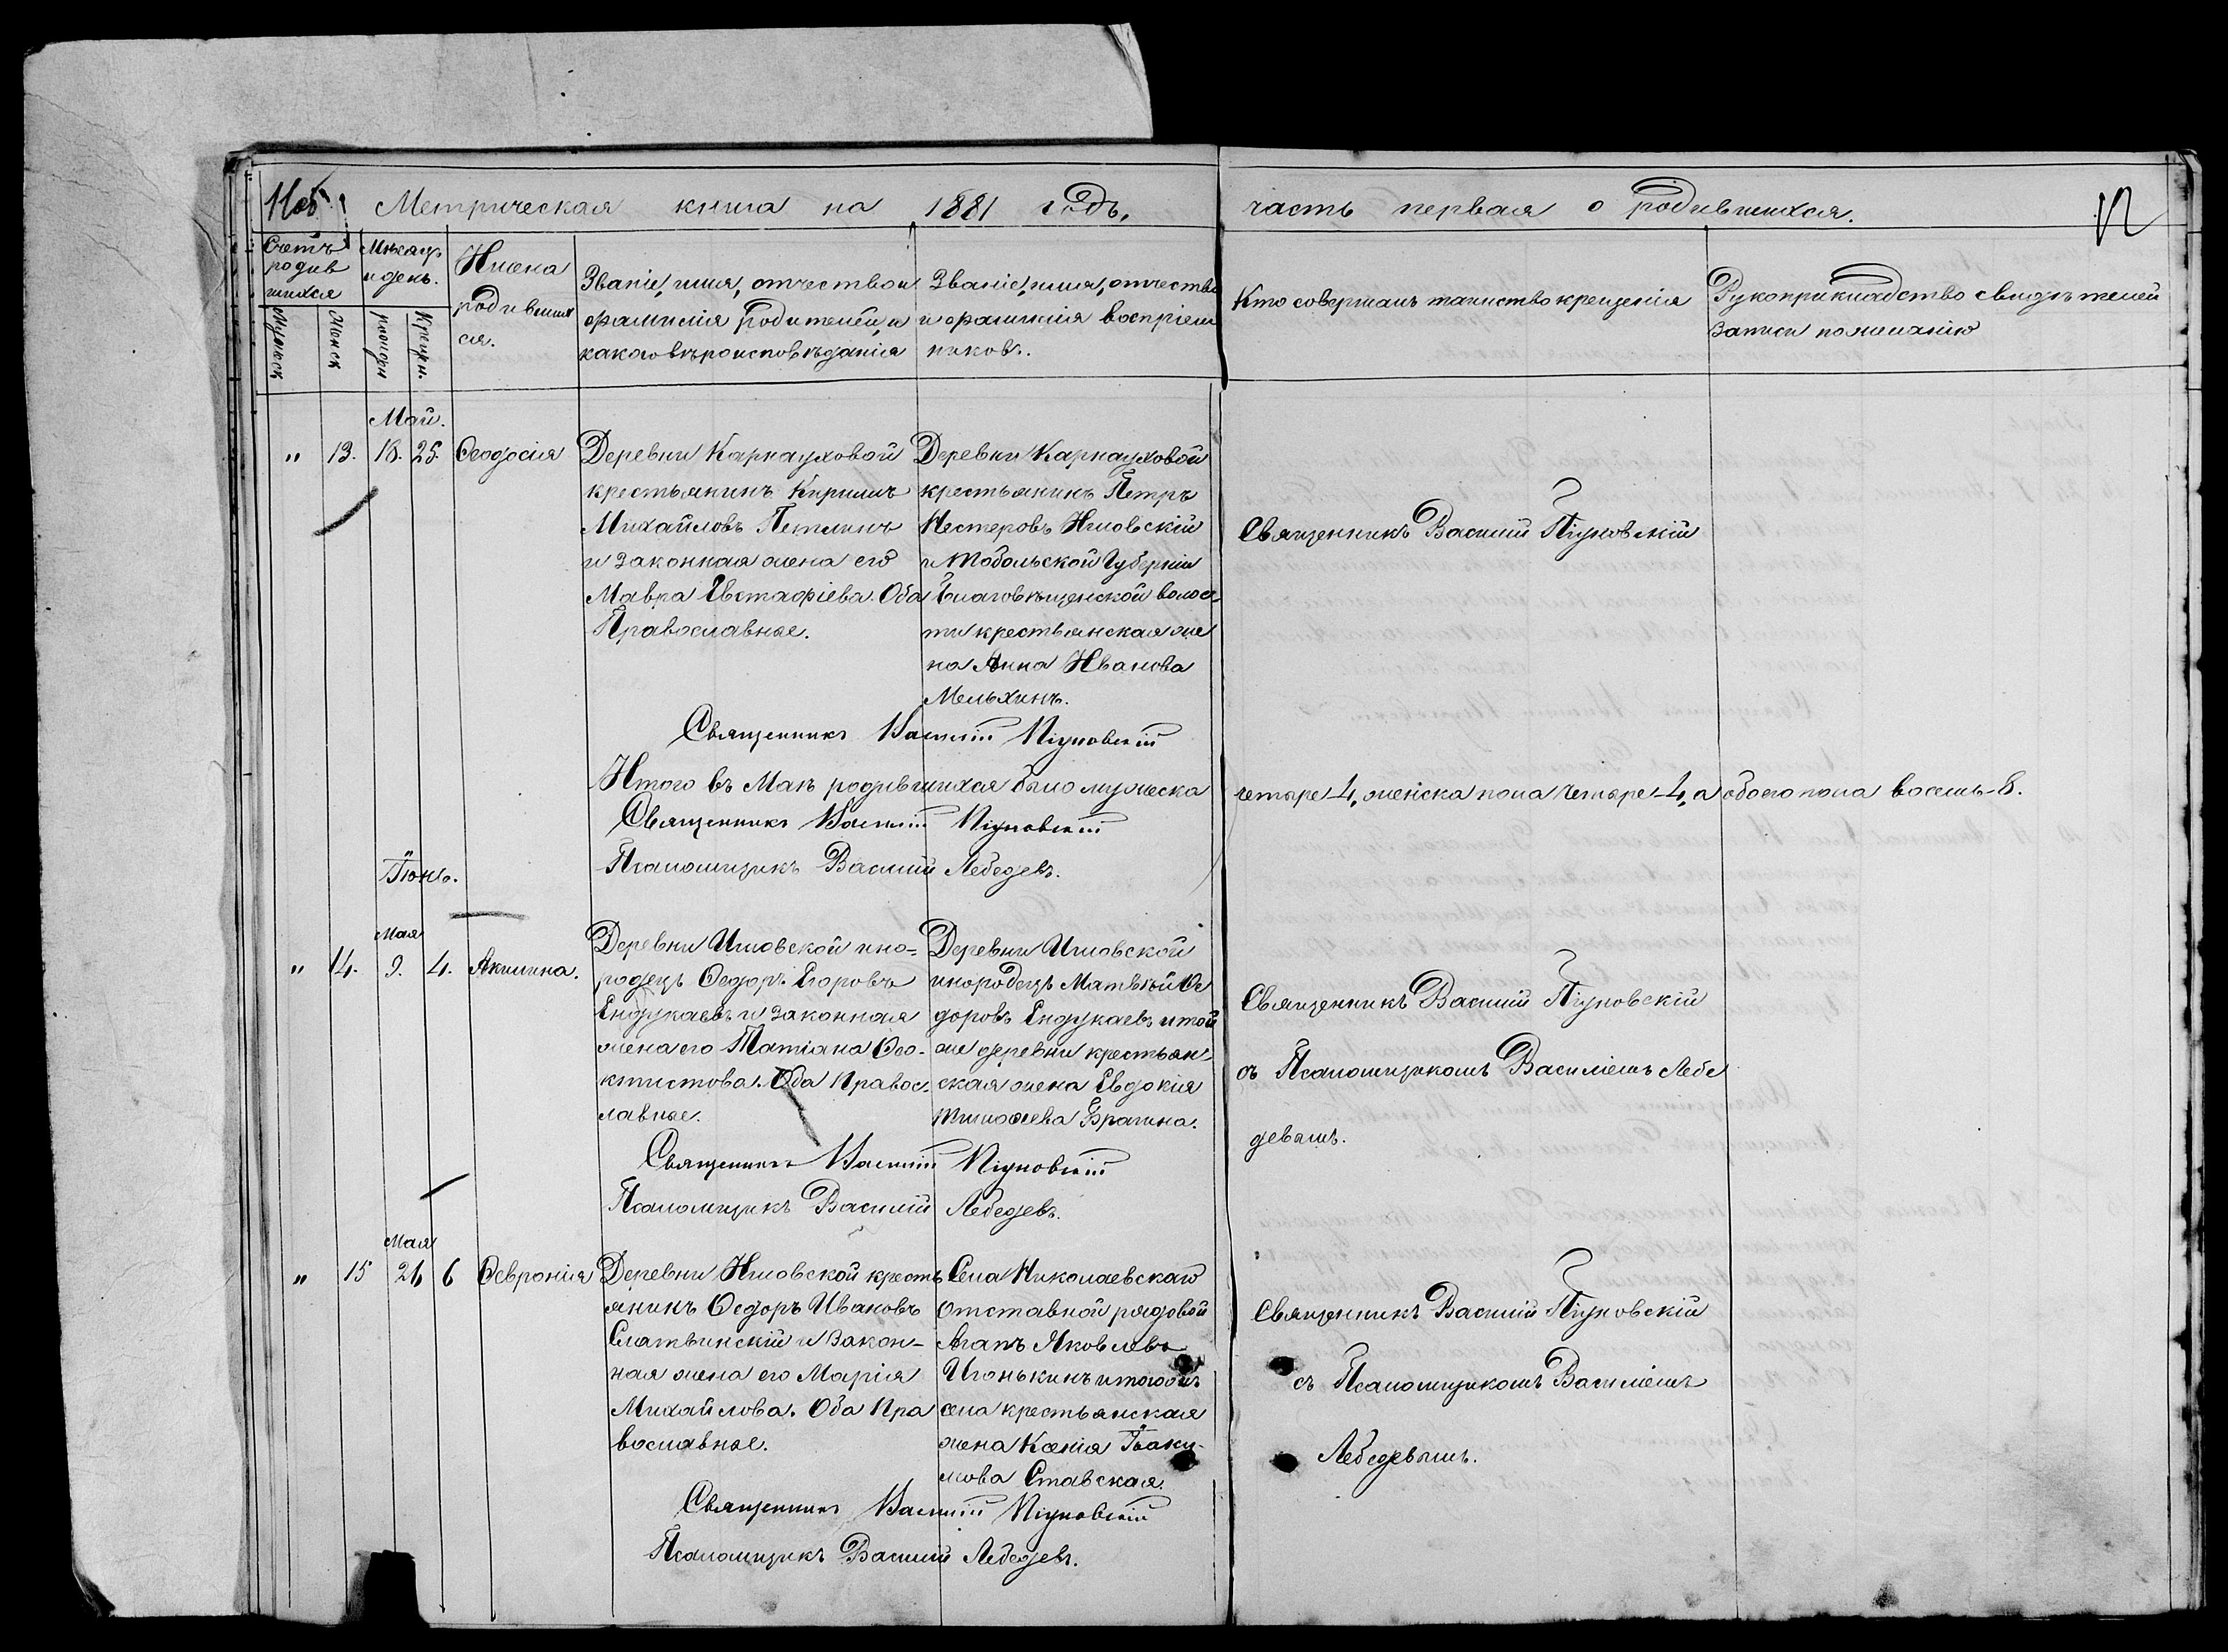 Метрическая книга на 1881 годъ,
часть первая о родившихся.
Счетъ родив шихся
Мѣсяцъ и день.
Имена родившихся.
Званіе, имя, отчество и фамилія родителей, и какого вѣроисповѣданія
Званіе, имя, отчество и фамилія воспріем никовъ.
Кто совершалъ таинство крещенія
Рукоприкладство свидѣтелей записи по желанію
Мужеск
Женск
рожден
Крещен.
Май.
" 13. 18. 25. Ѳеодосія
Деревни Карнауховой
крестьянинъ Кириллъ
Михайловъ Петлинъ
и законная жена его
Мавра Евстафіева. Оба
Православные.
Деревни Карнауховой
крестьянинъ Петръ
Нестеровъ Имовскій
и Тобольской Губерніи
Благовѣщенской волос
ти крестьянская же
на Анна Иванова
Мельхинъ.
Священникъ Василій Піуновскій
Священникъ Василій Піуновскій
Итого въ Маѣ родившихся было мужеска четыре 4, женска пола четыре 4, а обоего пола восемь - 8.
Священникъ Василій Піуновскій
Псаломщикъ Василій Лебедевъ.
Іюнь.
Мая
" 14. 9. 4. Акилина.
Деревни Имовской ино-
родецъ Ѳедоръ Егоровъ
Ендукаевъ и законная
жена его Татіана Ѳео-
ктистова. Оба Правос-
лавные.
Деревни Имовской
инородецъ Матвѣй Ѳе
доровъ Ендукаевъ и той
же деревни крестьян
ская жена Евдокія
Тимоѳеева Брагина.
Священникъ Василій Піуновскій
съ Псаломщикомъ Василіемъ Лебе
девымъ.
Священникъ Василій Піуновскій
Псаломщикъ Василій Лебедевъ.
Мая
" 15 26 6 Ѳевронія
Деревни Имовской кресть
янинъ Ѳедоръ Ивановъ
Слатвинскій и закон-
ная жена его Марія
Михайлова. Оба Пра
вославные.
Села Николаевскаго
отставной рядовой
Агапъ Яковлевъ
Игонькинъ и того же
села крестьянская
жена Ксенія Іоаки-
мова Ставская.
Священникъ Василій Піуновскій
съ Псаломщикомъ Василіемъ
Лебедевымъ.
Священникъ Василій Піуновскій
Псаломщикъ Василій Лебедевъ.